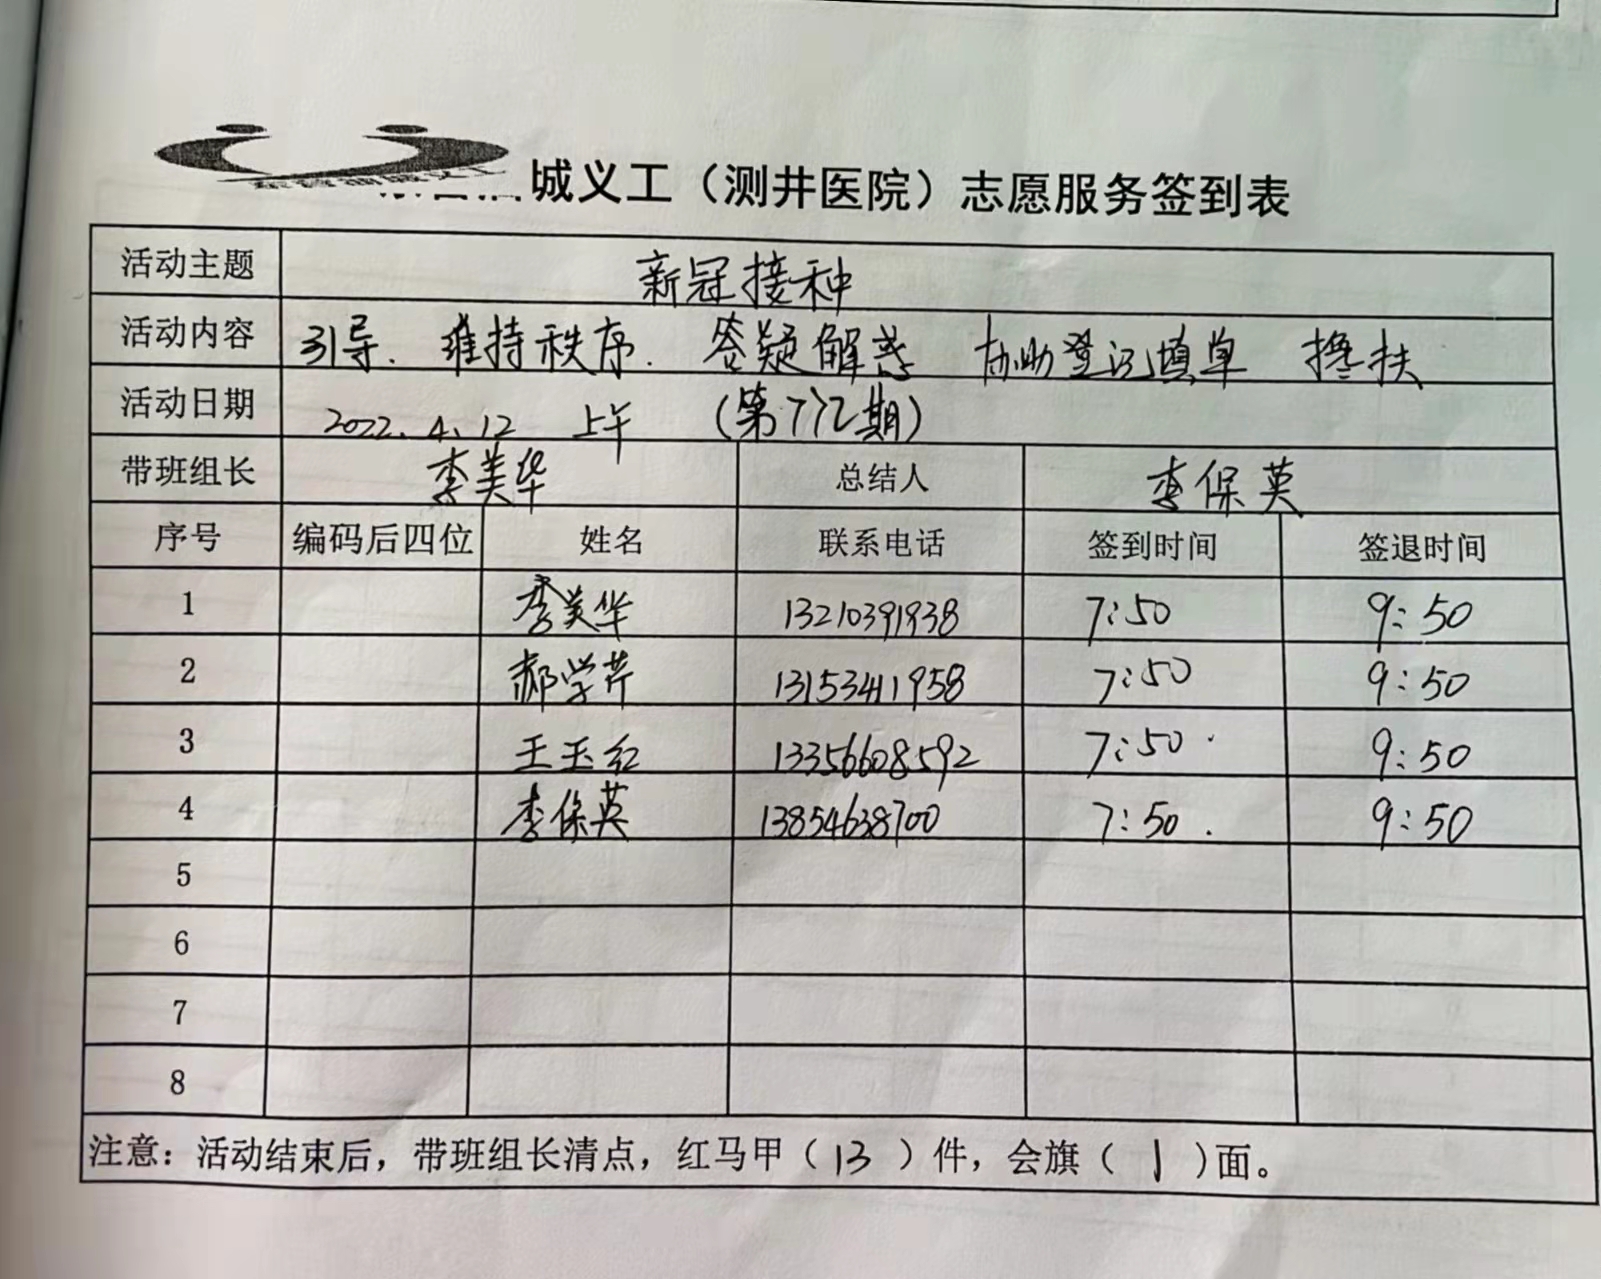 城义工（测井医院）志愿服务签到表
活动主题 新冠接种
活动内容 引导. 维持秩序. 答疑解惑 协助登记填单 搀扶
活动日期 2022.4.12 上午 (第772期)
带班组长 李美华 总结人 李保英
序号 编码后四位 姓名 联系电话 签到时间 签退时间
1 李美华 13210391938 7:50 9:50
2 郝学芹 13153411958 7:50 9:50
3 王玉红 13356608592 7:50 9:50
4 李保英 13854638700 7:50 9:50
5
6
7
8
注意：活动结束后，带班组长清点，红马甲（13）件，会旗（1）面。